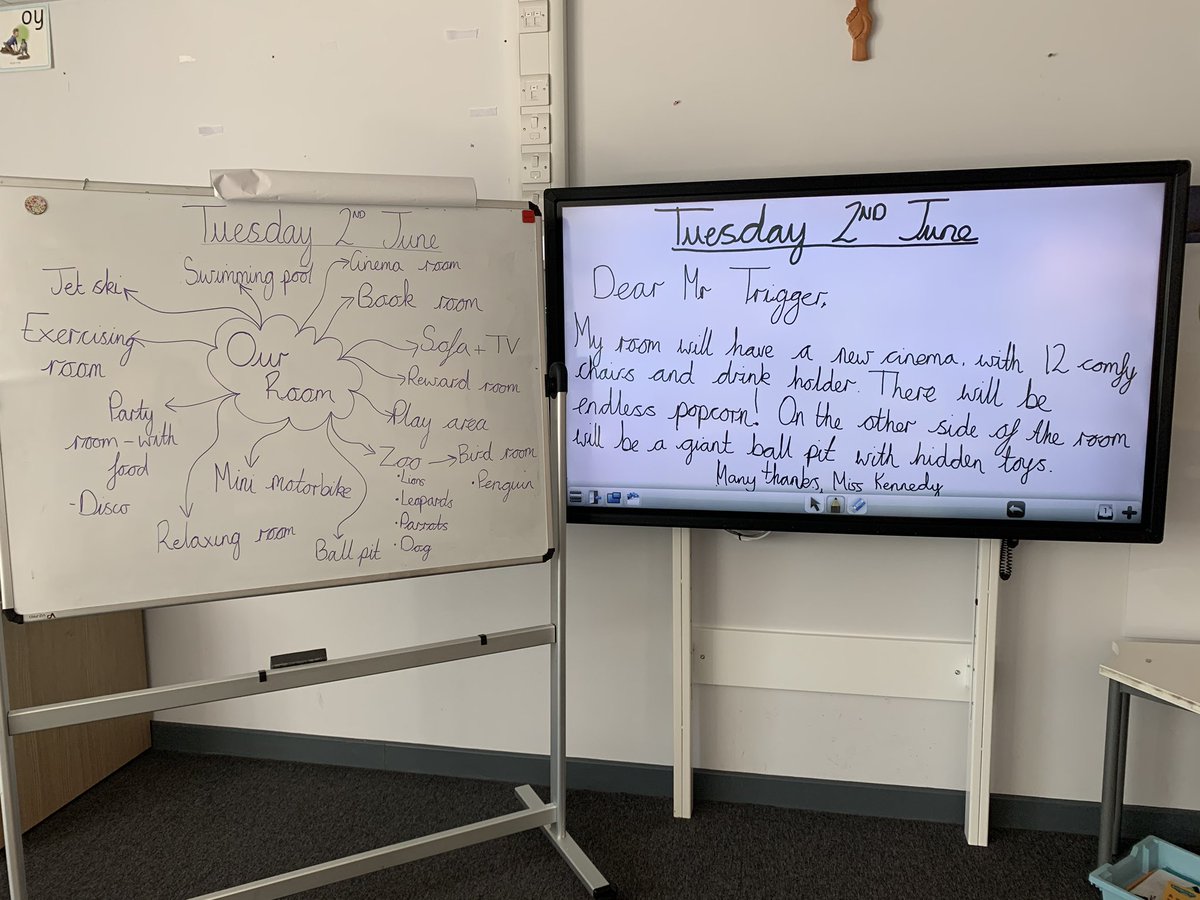 oy
Tuesday 2ND June
Jet ski
Swimming pool
Cinema room
Book room
Exercising
room
Our
Room
Sofa + TV
Reward room
Party
room - with
food
- Disco
Play area
Zoo
Bird room
• Lions
• Penguin
• Leopards
• Parrots
• Dog
Mini motorbike
Relaxing room
Ball pit
Tuesday 2ND June
Dear Mr Trigger,
My room will have a new cinema. with 12 comfy
chairs and drink holder. There will be
endless popcorn! On the other side of the room
will be a giant ball pit with hidden toys.
Many thanks, Miss Kennedy